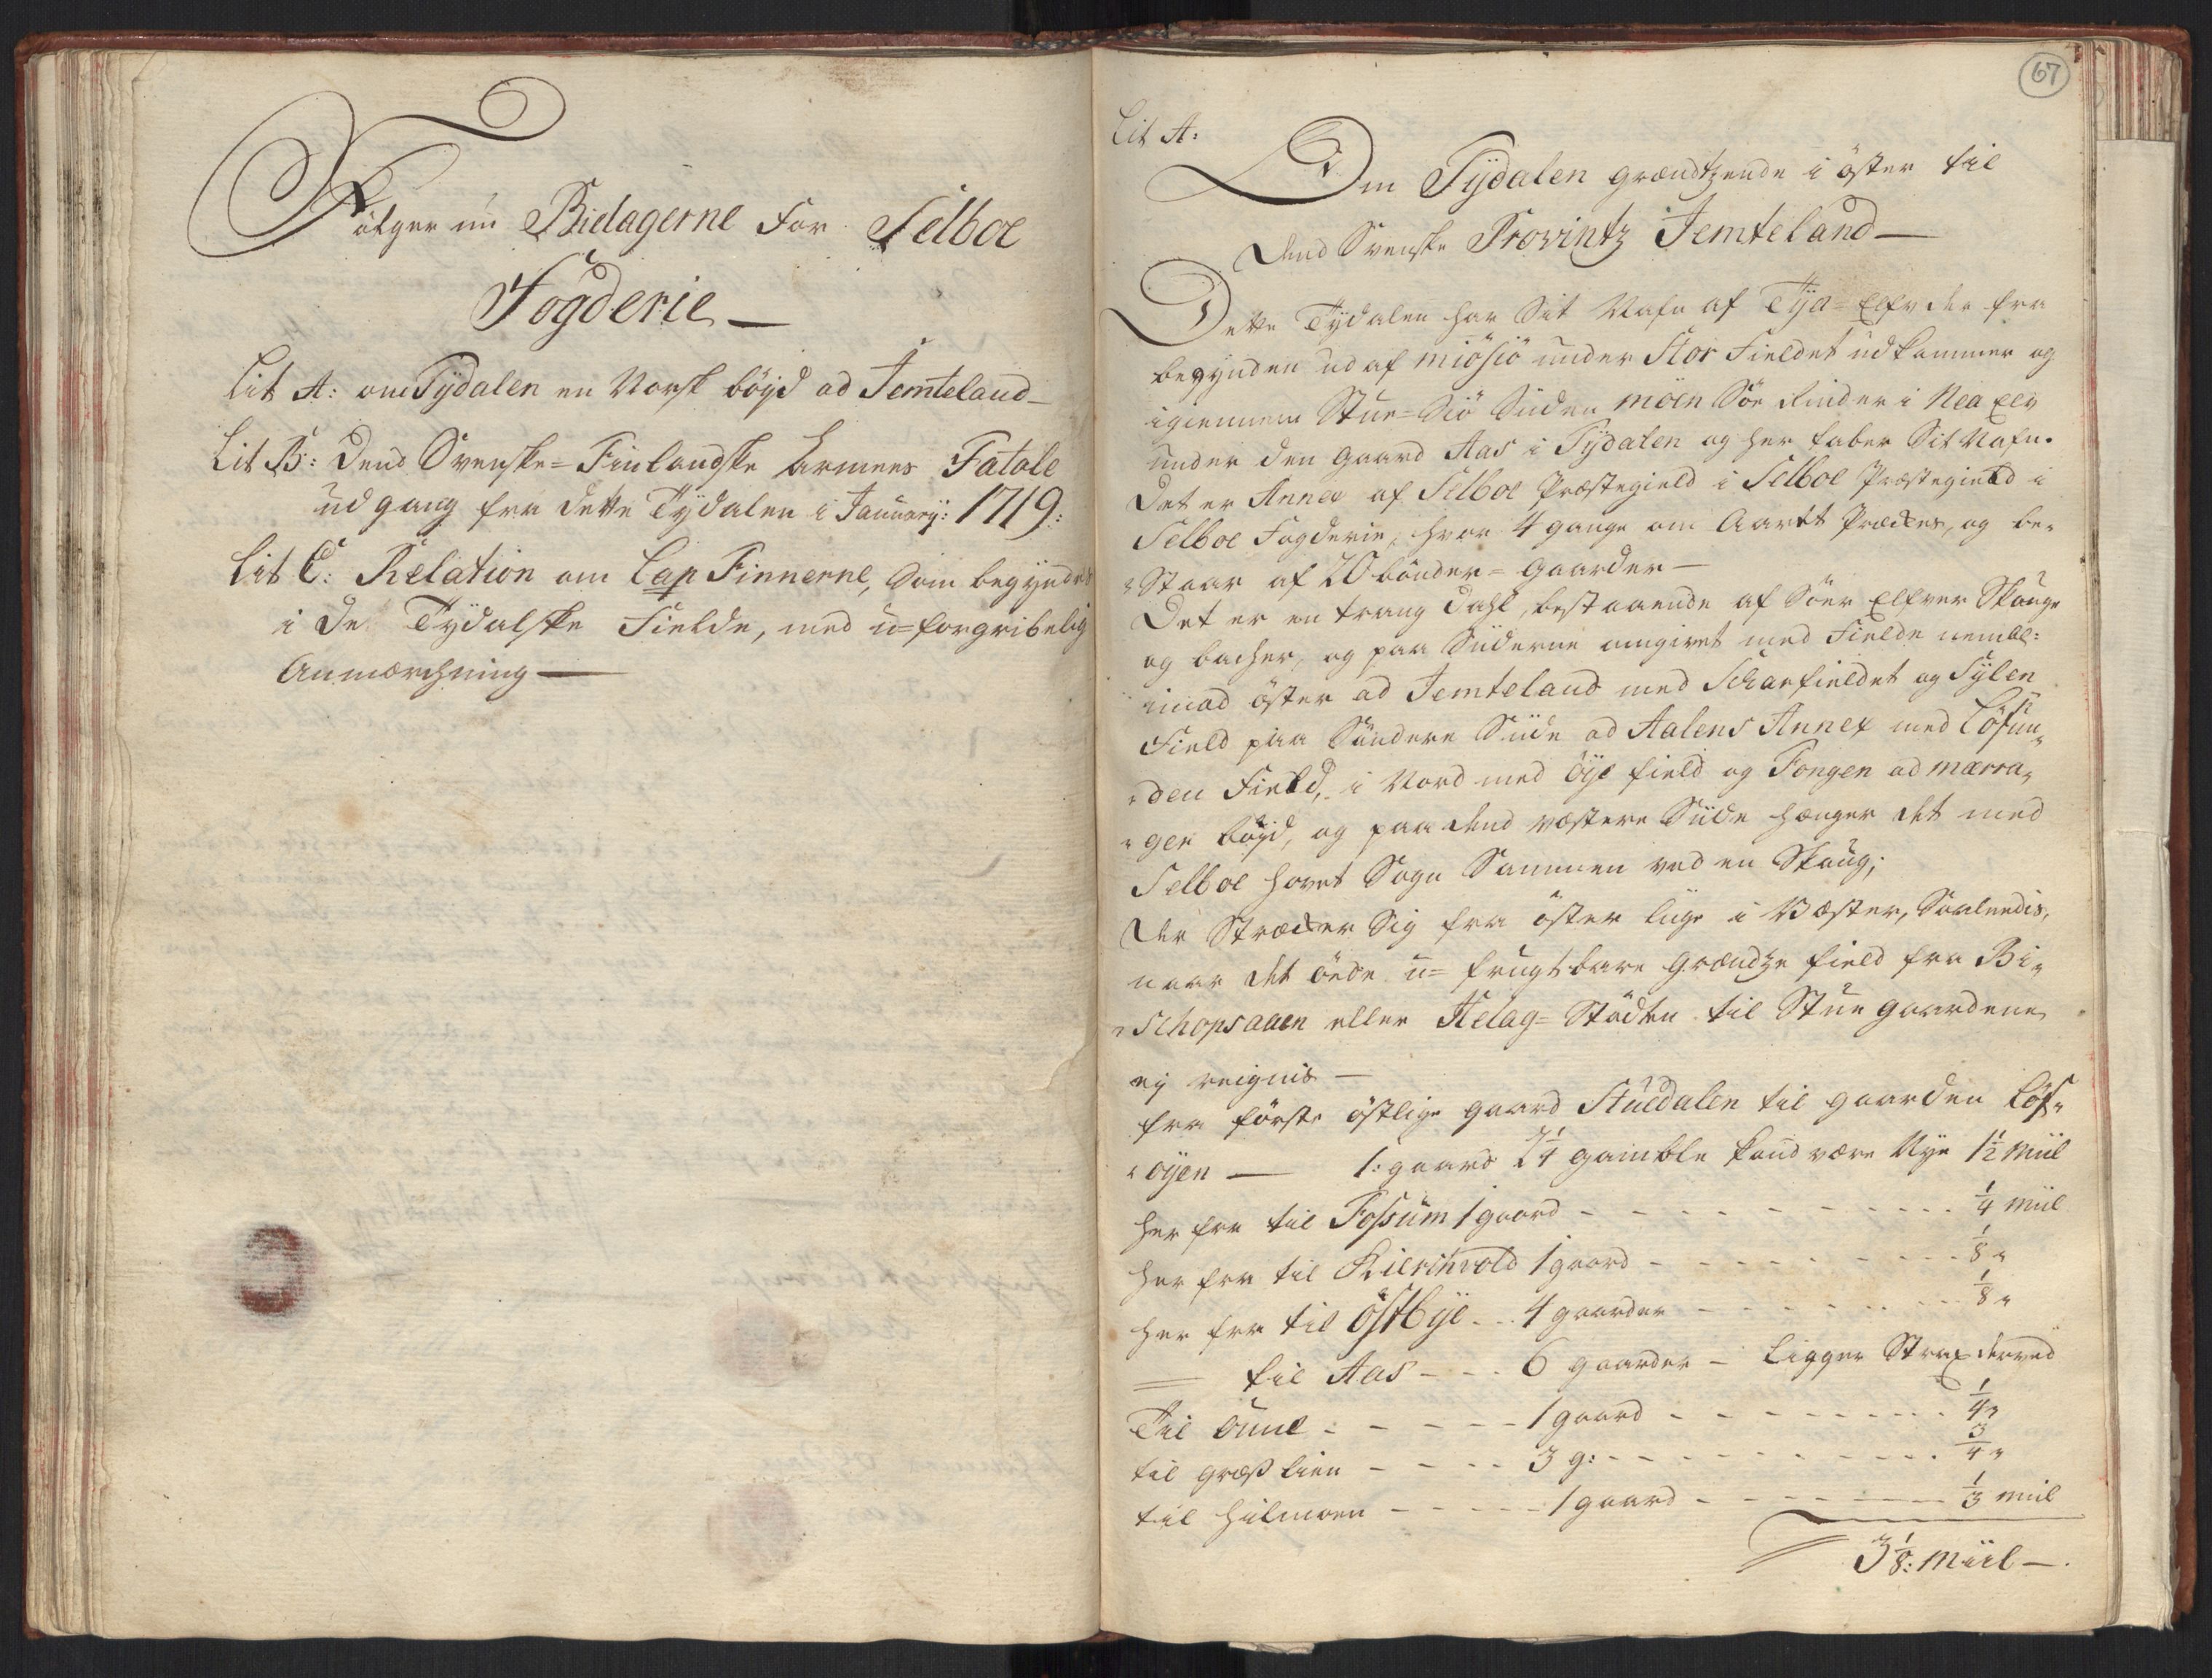 Følger nu Bielagerne for Selboe
Fogderie —
Lit A: om Tydalen en Norsk böyd ad Jemteland —
Lit B: Dend Svenske-Finlandske Armees Fatale
udgang fra dette Tydalen i January: 1719:
Lit C: Relation om Lap Finnerne, som begyndes
i de Tydalske Fielde, med u-forgribelig
Anmærchning —
67
Lit A:
Om Tydalen grændtzende i öster til
dend Svenske Provintz Jemteland —
Dette Tydalen har Sit Nafn af Tya-Elfv der fra
begynden ud af miösiö under Stor Fieldet udkommer og
igiennem Stue-Siö Siiden möen Söe rinder i Nea Elv
under den gaard Aas i Tydalen og her taber Sit Nafn.
Det er Annex af Selboe Præstegield i Selboe Præstegield i
Selboe Fogderie, hvor 4 gange om Aaret Prædikes, og be-
-Staar af 20 bönder-gaarder —
Det er en trang Dahl, bestaaende af Söer Elfver Skouge
og bacher, og paa Siiderne omgivet med Fielde nembl:
imod öster ad Jemteland med Skarfieldet og Sylen
Field paa Söndere Siide ad Aalens Annex med Löfun-
-den Field, i Nord med öye field og Fongen ad mærra-
-gen böyd, og paa dend væstere Siide hænger det med
Selboe hovet Sogn Sammen ved en Skoug;
Der Stræcker Sig fra öster lige i Væster, Saaledis,
naar det öede u-frugtbare grændtze field fra Bi-
-schopsaaen eller Helag-Stöden til Stue gaardene
ey reignis —
fra förste östlige gaard Stuedalen til gaarden Löf-
-öyen — 1: gaard 2 1/4 gamble kand være Nye 1 1/2 Miil
her fra til Fossum 1 gaard - - - - - - - - 1/4 miil
her fra til Kierchvold 1 gaard - - - - - - - - 1/8 "
her fra til Östbye - - 4 gaarder - - - - - - - 1/8 "
= til Aas - - - 6 gaarder - Ligger Strax derved
Til Unne - - - - - 1 gaard - - - - - - - - 1/4 "
til Græslien - - - - 3 g: - - - - - - - - 3/4 "
til Hilmoen - - - - - 1 gaard - - - - - - 1/3 miil
3 1/8: Miil —